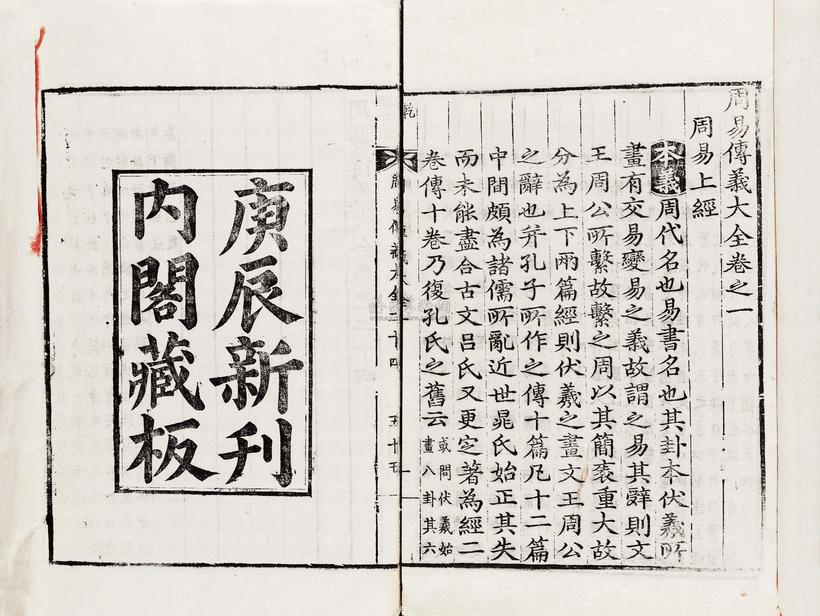 周易傳義大全卷之一
周易上經
本義周代名也易書名也其卦本伏羲所
畫有交易變易之義故謂之易其辭則文
王周公所繫故繫之周以其簡袠重大故
分為上下兩篇經則伏羲之畫文王周公
之辭也并孔子所作之傳十篇凡十二篇
中間頗為諸儒所亂近世晁氏始正其失
而未能盡合古文呂氏又更定著為經二
卷傳十卷乃復孔氏之舊云或問伏羲始
畫八卦其六
乾
周易傳義大全二十四
五十五
庚辰新刊
內閣藏板